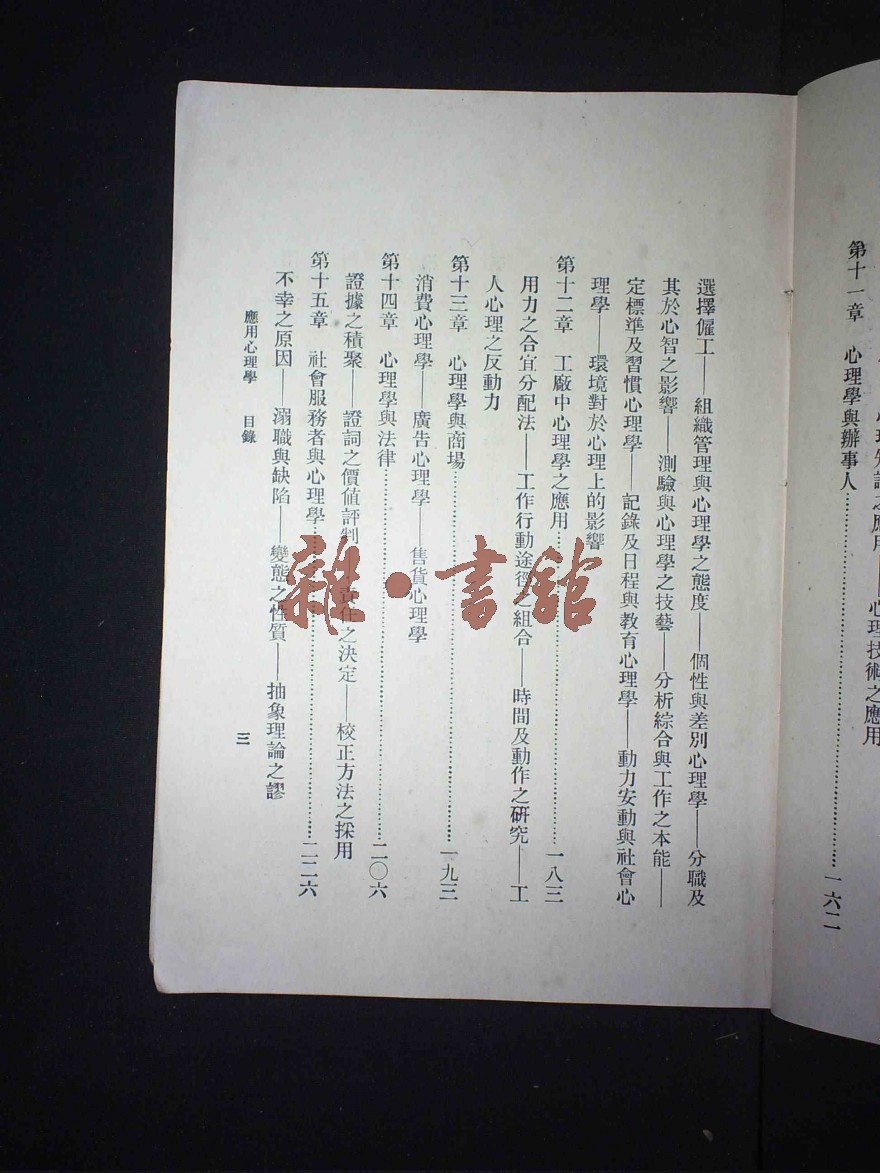 心理知識之應用——心理技術之應用
第十一章 心理學與辦事人……一六二
選擇僱工——組織管理與心理學之態度——個性與差別心理學——分職及
其於心智之影響——測驗與心理學之技藝——分析綜合與工作之本能——
定標準及習慣心理學——記錄及日程與教育心理學——動力安動與社會心
理學——環境對於心理上的影響
第十二章 工廠中心理學之應用……一八三
用力之合宜分配法——工作行動途徑之組合——時間及動作之研究——工
人心理之反動力
第十三章 心理學與商場……一九三
消費心理學——廣告心理學——售貨心理學
第十四章 心理學與法律……二〇六
證據之積聚——證詞之價值評判——責任之決定——校正方法之採用
第十五章 社會服務者與心理學……二二六
不幸之原因——溺職與缺陷——變態之性質——抽象理論之謬
應用心理學 目錄
三
雜·書館